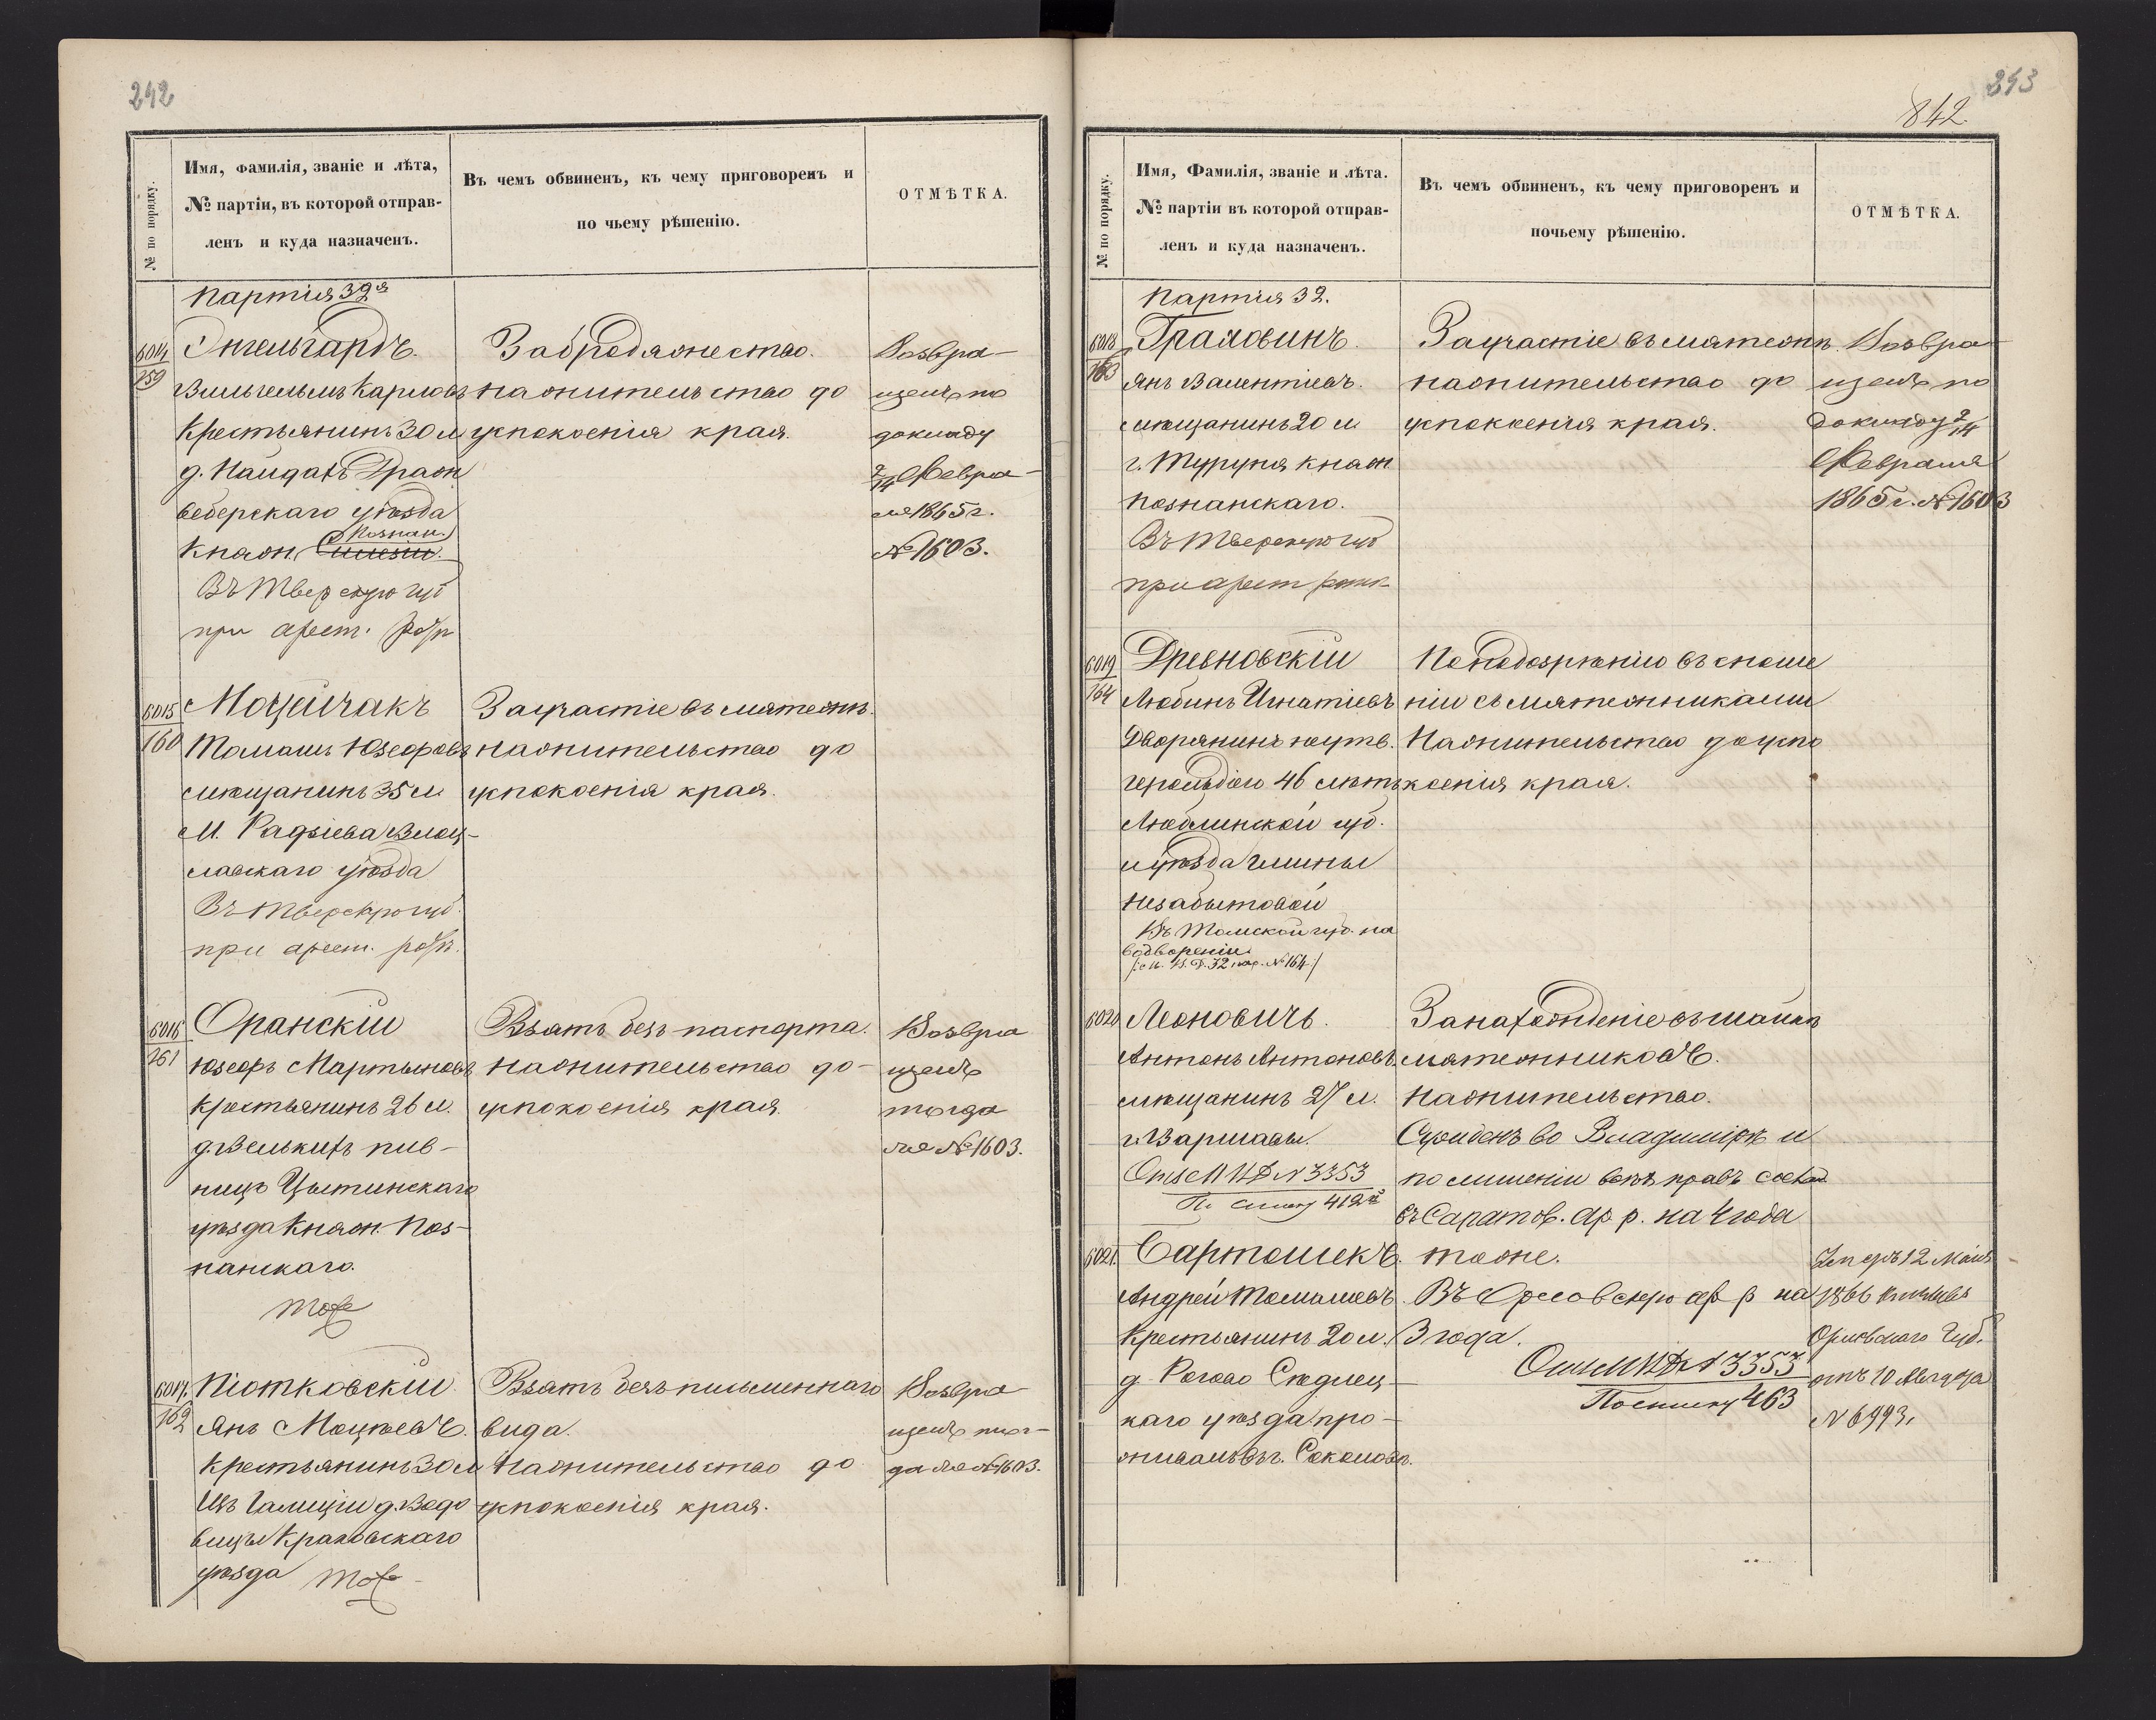 242
№ по порядку.
Имя, фамилія, званіе и лѣта,
№ партіи, въ которой отправ-
ленъ и куда назначенъ.
Въ чемъ обвиненъ, къ чему приговоренъ и
по чьему рѣшенію.
ОТМѢТКА.
Партія 32я
6014
159
Энгельгардъ.
Вильгельмъ Карловъ
Крестьянинъ 30 л
д.
уѣзда
Княж. Познан.
Въ Тверскую губ
при арест. ротѣ
За бродяжество.
На жительство до
успокоенія края.
Возвра-
щенъ по
докладу
2/14 Февра-
ля 1865 г.
№ 1603.
6015
160
Мацейчакъ
Томашъ Юзефовъ
мѣщанинъ 35 л.
М. Радзіева Влоц-
славскаго уѣзда
Въ Тверскую губ.
при арест. ротѣ.
За участіе въ мятежѣ.
На жительство до
успокоенія края.
6016
161
Оранскій
Юзефъ Мартыновъ
Крестьянинъ 26 л.
д. Велькихъ пив-
ницъ
уѣзда Княж. Поз-
нанскаго.
тоже
Взятъ безъ паспорта.
На жительство до-
успокоенія края.
Возвра
щенъ
тогда
же № 1603.
6017.
162
Піотковскій
Янъ Мацѣевъ.
Крестьянинъ 30 л
Изъ Галиціи д. Водо
вицы Краковскаго
уѣзда тоже
Взятъ безъ письменнаго
вида.
На жительство до
успокоенія края.
Возвра-
щенъ тог-
да же № 1603.
243
842.
№ по порядку.
Имя, Фамилія, званіе и лѣта.
№ партіи въ которой отправ-
ленъ и куда назначенъ.
Въ чемъ обвиненъ, къ чему приговоренъ и
почьему рѣшенію.
ОТМѢТКА.
Партія 32.
6018
163
Янъ Валентіевъ.
мѣщанинъ 20 л
г. Туруня Княж
Познанскаго.
Въ Тверскую губ
при арест ротѣ
За участіе въ мятежѣ.
на жительство до
успокоенія края.
Возвра
щенъ по
докладу 2/14
Февраля
1865 г. № 1603
6019
164
Древновскій
Любинъ Игнатіевъ
Дворянинъ неутв.
герольдіею 46 лѣтъ
Люблинской губ.
и уѣзда гмины
Незабытовой
Въ Томской губ. на
водвореніи.
По подозрѣнію въ сноше
ніи съ мятежниками
На жительство до успо
коенія края.
6020
Леоновичъ.
Антонъ Антоновъ.
мѣщанинъ 27 л.
г. Варшавы.
№ 3353
По списку 412
За нахожденіе въ шайкѣ
мятежниковъ.
На жительство.
Сужденъ во Владимірѣ и
по лишеніи всѣхъ правъ сост.
въ Саратов. ар р. на 4 года
6021.
Бартошекъ.
Андрей Томашевъ.
Крестьянинъ 20 л.
д. Рогово Сѣдлец-
каго уѣзда про-
живалъ въ г. Соколовѣ.
тоже.
Въ Орловскую ар р на
3 года.
№ 3353
По списку 463
12 Мая
1866
Орловскаго Губ.
отъ 10 Августа
№ 6993.